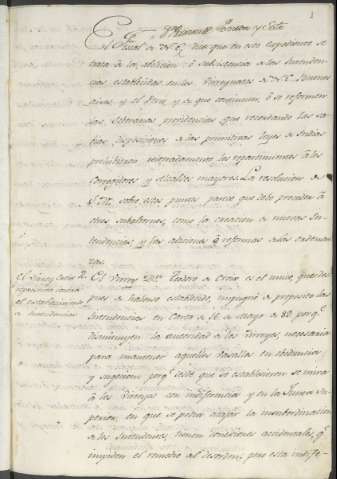 1
El Fiscal de N. E. dice que en este expediente se
trata de la abolicion ó subsistencia de las Intenden-
cias establecidas en los Virreynatos de N. E. Buenos
aires y el Perú, y de que continuen, ó se reformen
las Soberanas providencias que recordando las sa-
bias disposiciones de las primitivas leyes de Indias
prohibieron rigurosamente los repartimientos á los
Corregidores y Alcaldes mayores. La resolucion de
S. M. sobre estos puntos parece que debe preceder á
otros subalternos, como la creacion de nuevas In-
tendencias y las adiciones ó reformas de las ordenan-
zas.
El Virrey Croix R.
representó contra
el establecimiento
de intendencias
El Virrey Dn. Teodoro de Croix es el unico, que des-
pues de haberse establecido, impugnó de proposito las
Intendencias en Carta de 16 de Mayo de 89 porqe.
disminuyen la autoridad de los Virreyes, necesaria
para mantener aquellos vasallos en obediencia;
y sugirieron porqe. desde que se establecieron se mira
á los Virreyes con indiferencia y en la Junta Su-
perior, en que se podia atajar la insubordinacion
de los Intendentes, tienen conexiones accidentales, qe.
impiden el remedio al desorden, pues esta indife-